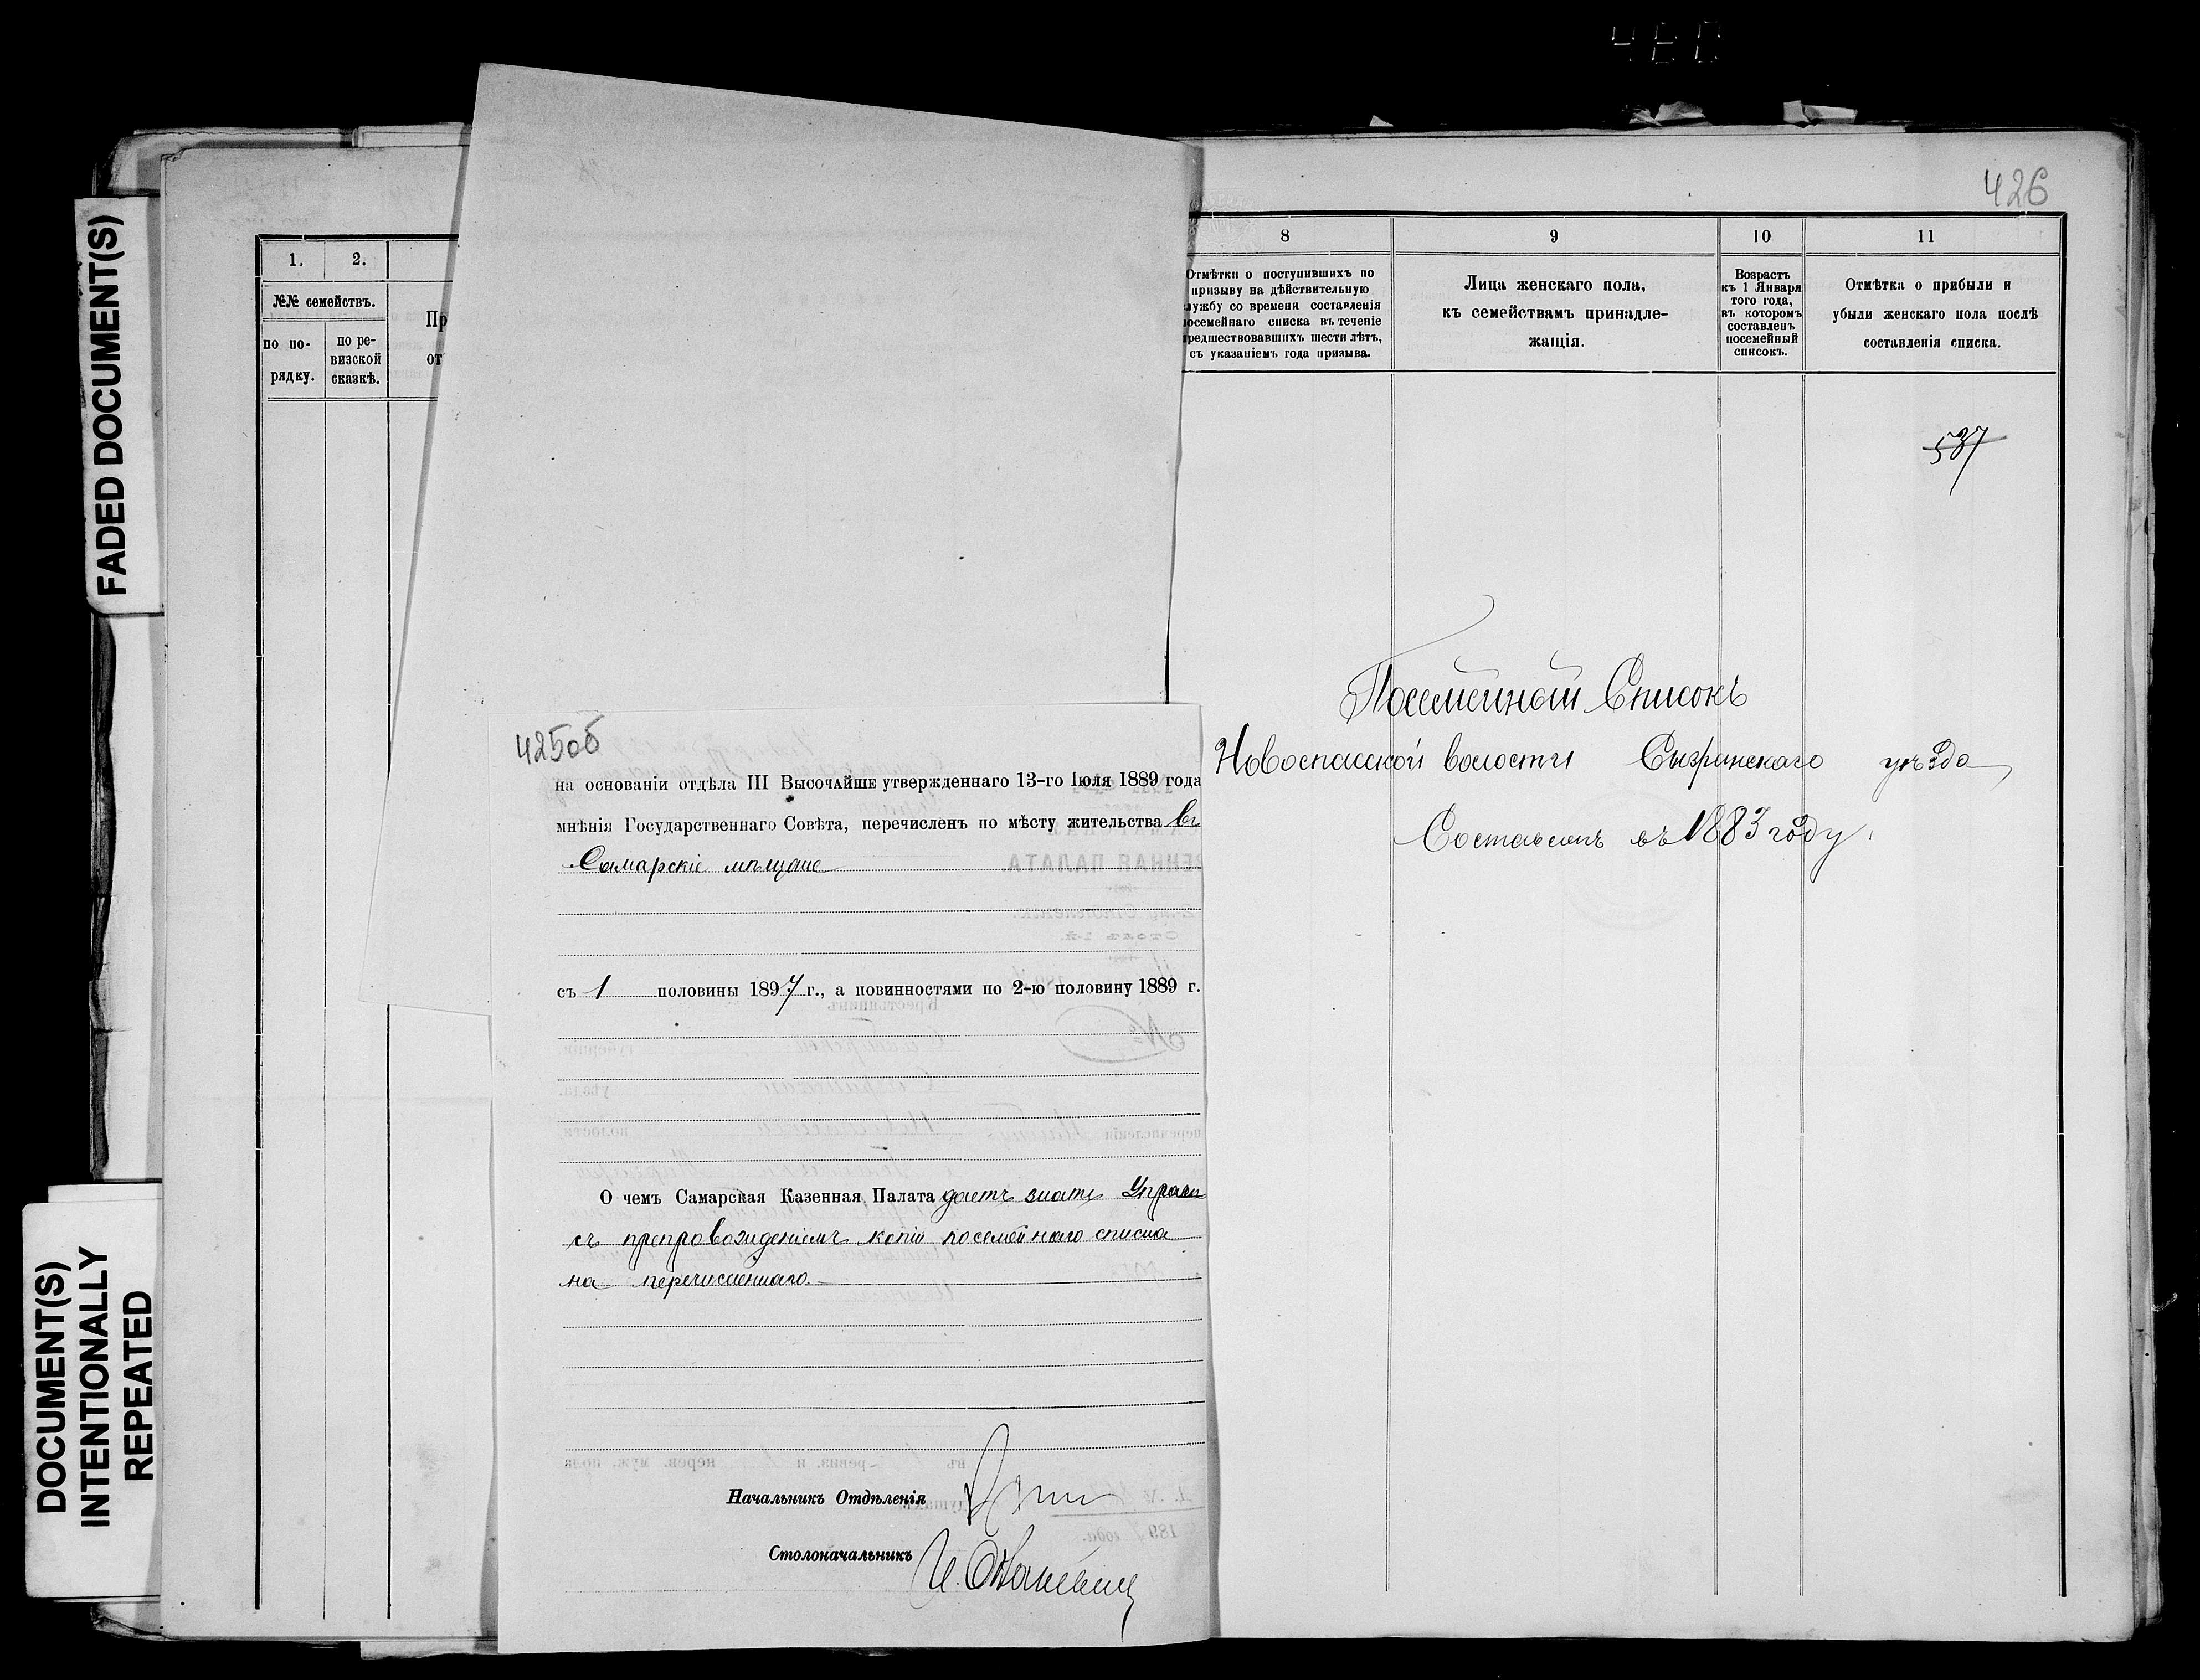 FADED DOCUMENT(S)
DOCUMENT(S)
INTENTIONALLY
REPEATED
1.
2.
№№ семействъ.
по по-
рядку.
по ре-
визской
сказкѣ.
Пр
от
425об
на основаніи отдѣла III Высочайше утвержденнаго 13-го Іюля 1889 года
мнѣнія Государственнаго Совѣта, перечисленъ по мѣсту жительства въ
Самарскіе мѣщане
съ 1 половины 1897 г., а повинностями по 2-ю половину 1889 г.
О чемъ Самарская Казенная Палата даетъ знать Управѣ
съ препровожденіемъ копіи посемейнаго списка
на перечисленнаго.
Начальникъ Отдѣленія
Столоначальникъ
426
8
9
10
11
Отмѣтки о поступившихъ по
призыву на дѣйствительную
лужбу со времени составленія
осемейнаго списка въ теченіе
редшествовавшихъ шести лѣтъ,
съ указаніемъ года призыва.
Лица женскаго пола,
къ семействамъ принадле-
жащія.
Возрастъ
къ 1 Января
того года,
въ которомъ
составленъ
посемейный
списокъ.
Отмѣтка о прибыли и
убыли женскаго пола послѣ
составленія списка.
537
Посемейный Списокъ
Новоспасской волости Сызранскаго уѣзда
Составленъ въ 1883 году.